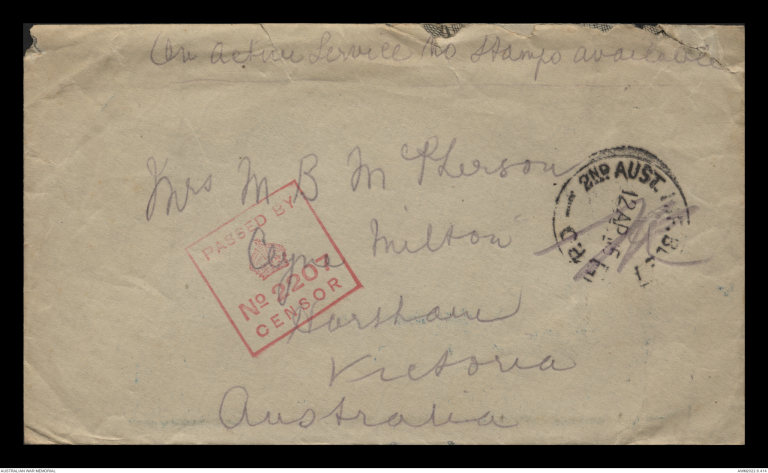 On active Service No Stamps available
Mrs M B McPherson
Milton
Horsham
Victoria
Australia
PASSED BY
No 2207
CENSOR
2ND AUST. INF. B
12 AP
AUSTRALIAN WAR MEMORIAL